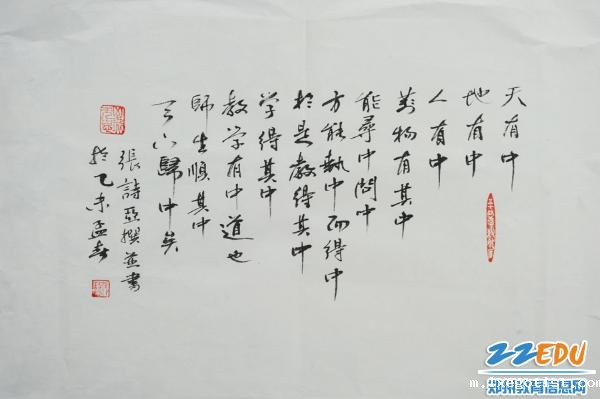 天有中
地有中
人有中
万物有其中
能尋中问中
方能執中而得中
於是教得其中
学得其中
教学有中道也
師生順其中
天下歸中矣
張詩亞撰並書
於乙未孟春
ZZEDU
郑州教育信息网